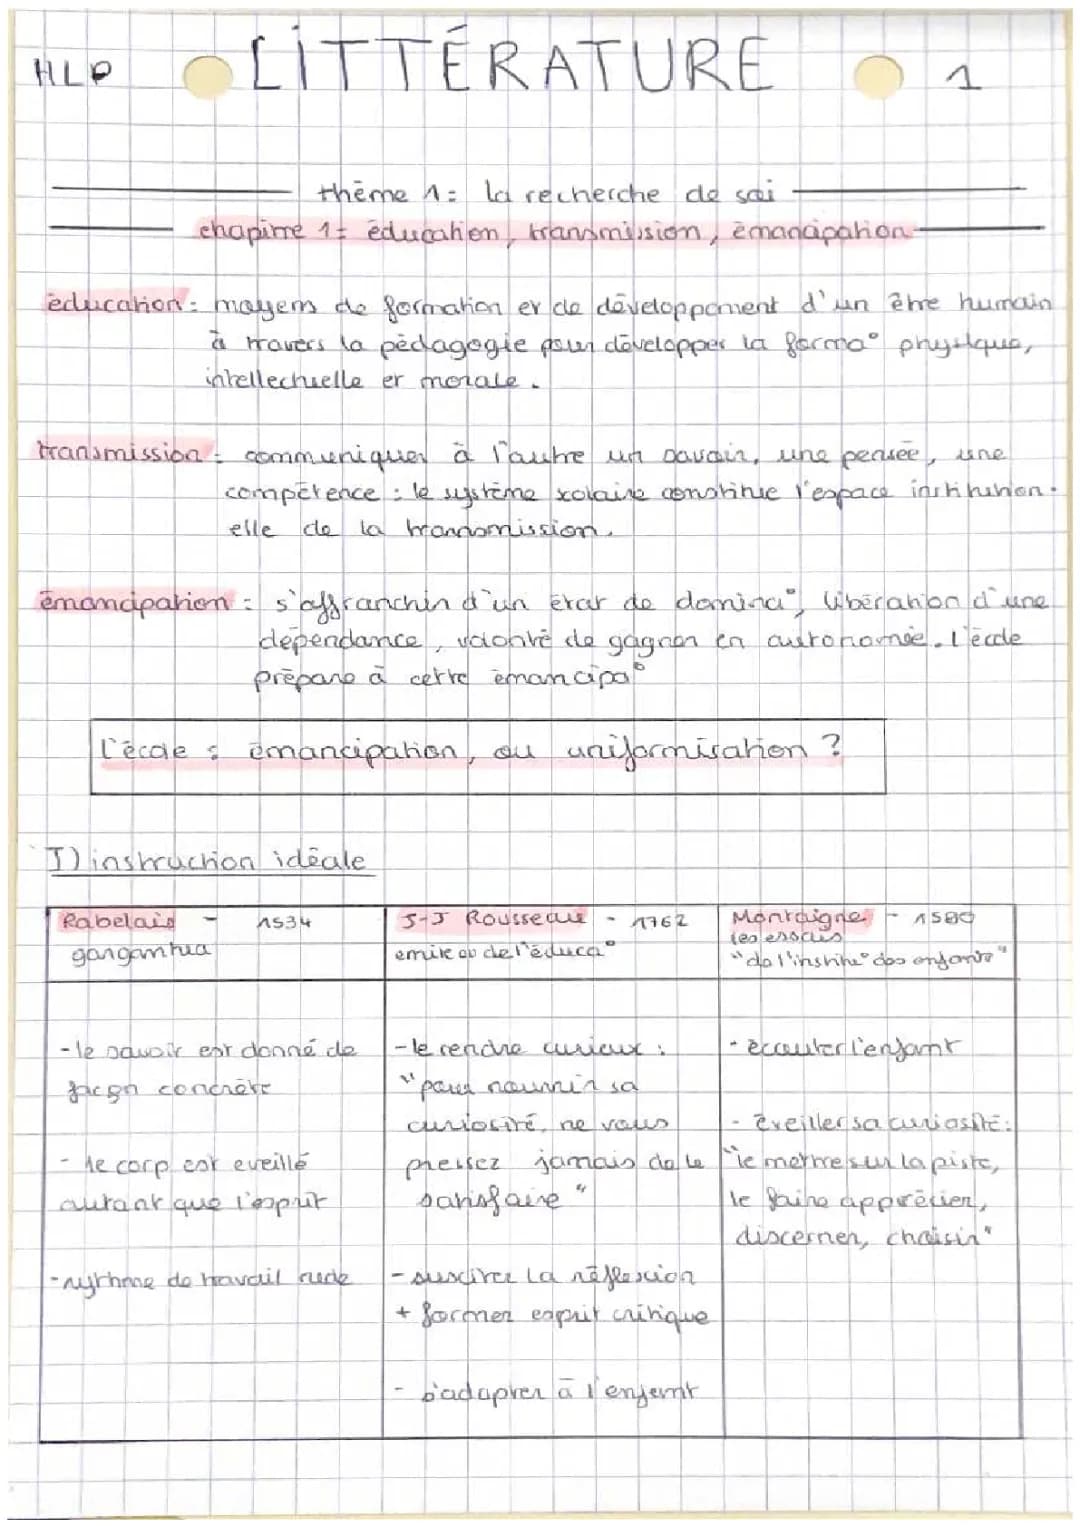 HLP LITTÉRATURE 1
thème 1= la recherche de soi
chapitre 1= éducation, transmission, émancipation
éducation : moyens de formation et de développement d'un être humain
à travers la pédagogie pour développer la forma° physique,
intellectuelle et morale.
transmission : communiquer à l'autre un savoir, une pensée, une
compétence : le système scolaire constitue l'espace institution-
elle de la transmission.
émancipation : s'affranchir d'un état de domina°, libération d'une
dépendance, volonté de gagner en autonomie. L'école
prépare à cette émancipa°
L'école : émancipation, ou uniformisation ?
I) instruction idéale
Rabelais - 1534
gargantua
- le savoir est donné de
façon concrète
- le corp est eveillé
autant que l'esprit
- rythme de travail rude
J-J Rousseau - 1762
emile ou de l'éduca°
- le rendre curieux :
"pour nourrir sa
curiosité, ne vous
pressez jamais de le
satisfaire"
- susciter la réflexion
+ former esprit critique
- s'adapter à l'enfant
Montaigne - 1580
les essais
"de l'institu° des enfants"
- écouter l'enfant
- éveiller sa curiosité :
"le mettre sur la piste,
le faire apprécier,
discerner, choisir"